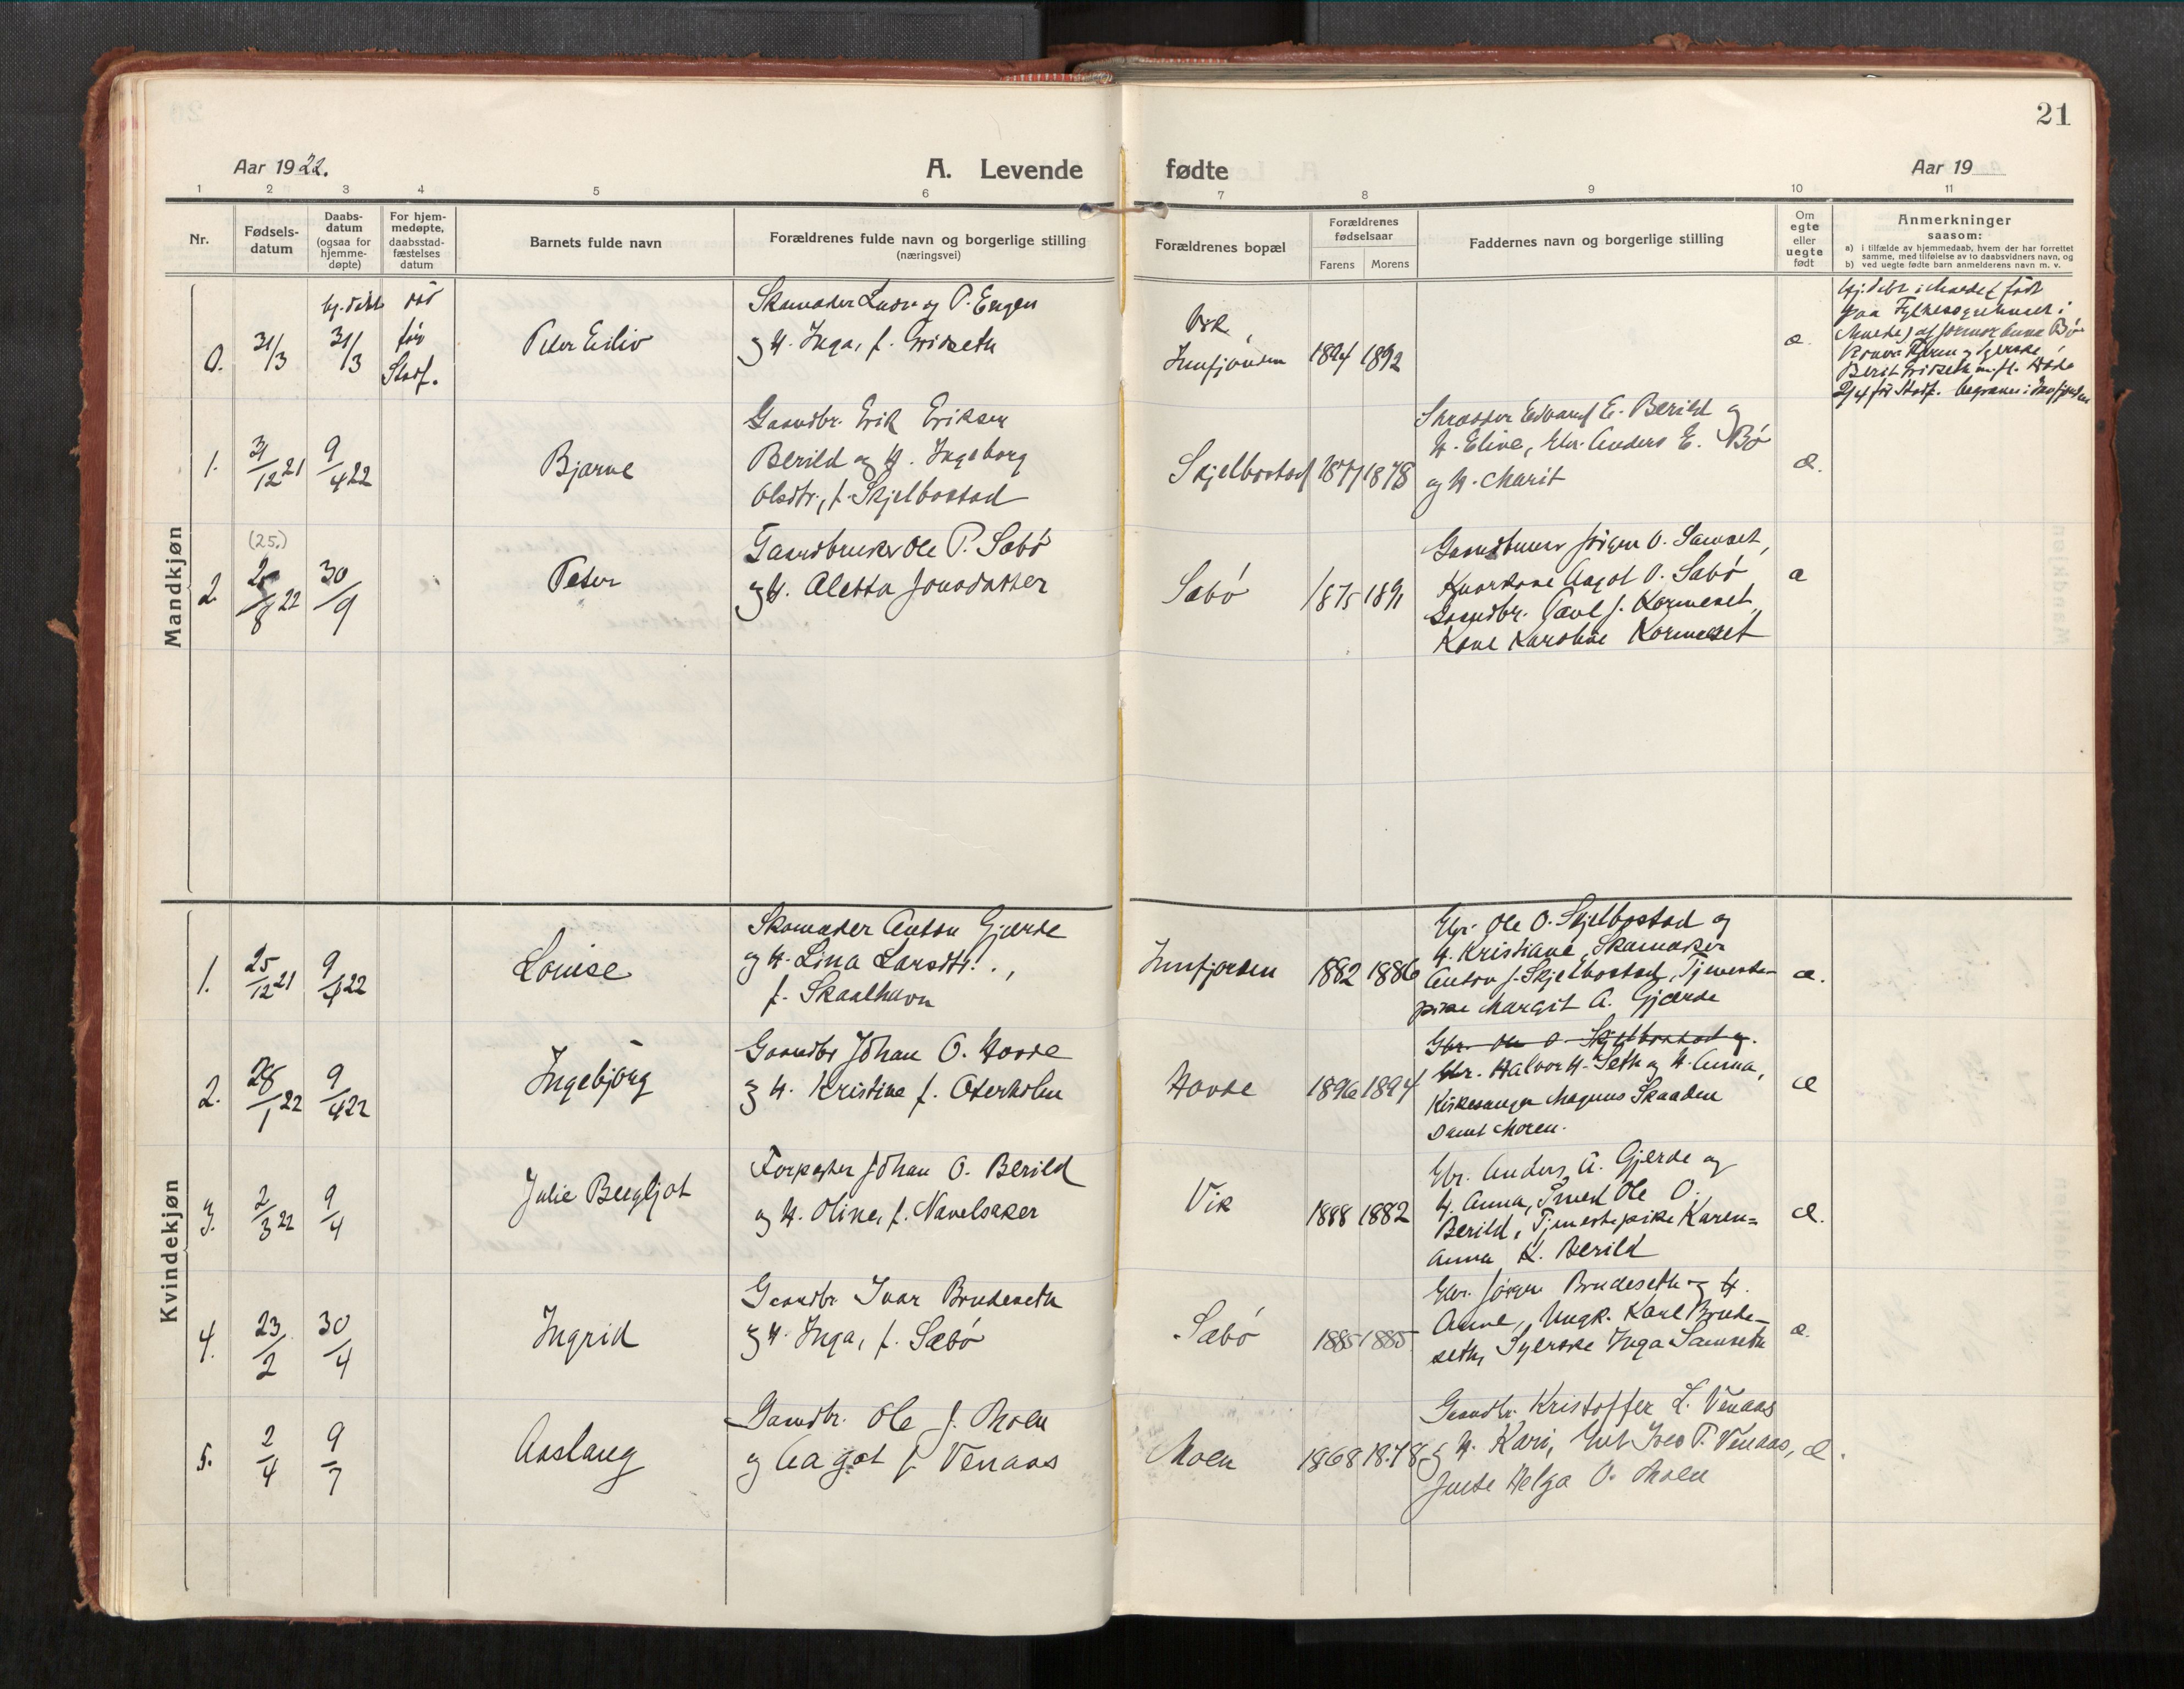 21
Aar 1922.
A. Levende fødte
Aar 19
1 2 3 4 5 6 7 8 9 10 11
Nr.
Fødsels-
datum
Daabs-
datum
(ogsaa for
hjemme-
døpte)
For hjem-
medøpte,
daabsstad-
fæstelses
datum
Barnets fulde navn
Forældrenes fulde navn og borgerlige stilling
(næringsvei)
Forældrenes bopæl
Forældrenes
fødselsaar
Farens Morens
Faddernes navn og borgerlige stilling
Om
egte
eller
uegte
født
Anmerkninger
saasom:
a) i tilfælde av hjemmedaab, hvem der har forrettet
samme, med tilføielse av to daabsvidners navn, og
b) ved uegte fødte barn anmelderens navn m. v.
Mandkjøn
0.
31/3
hj. døbt
31/3
død
før
Stadf.
Peter Eiliv
Skomaker P. Engen
og H. Inga, f.
Vik,
Innfjorden
1894 1892
æ.
født
paa
Anna Bø
Berit
2/4 før Stadf. begraves i Innfjorden
1.
31/12 21
9/4 22
Bjarne
Gaardbr. Erik Eriksen
Berild og H. Ingeborg
Olsdtr., f. Skjelbostad
Skjelbostad
1877 1878
Skrædder Edvard E. Berild og
H. Eline, Gbr. Anders E. Bø
og H. Marit
æ.
2.
(25.)
25/8 22
30/9
Peter
Gaardbruker Ole P. Sæbø
og H. Aletta Jonsdatter
Sæbø
1875 1891
Gaardbruker Jørgen O. Samset,
Aagot O. Sæbø
Gaardbr. Paul J. Kormeset,
Kone Karoline Kormeset
æ
Kvindekjøn
1.
25/12 21
9/4 22
Louise
Skomaker Anton Gjerde
og H. Lina Larsdtr.,
f. Skaalhavn
Innfjorden
1882 1886
Gbr. Ole O. Skjelbostad og
H. Kristiane, Skomaker
Anton J. Skjelbostad, Tjeneste-
pike Margit A. Gjærde
æ.
2.
28/1 22
9/4 22
Ingebjørg
Gaardbr Johan O. Hovde
og H. Kristine f. Oterholm
Hovde
1896 1894
Gbr. Ole O. Skjelbostad og.
Gbr. Halvor H. Seth og H. Anna,
Kirkesanger Magnus Skaaden
samt Moren.
æ
3.
2/3 22
9/4
Julie Bergljot
Forpagter Johan O. Berild
og H. Oline, f. Navelsaker
Vik
1888 1882
Gbr. Anders A. Gjerde og
H. Anna, Smed Ole O.
Berild, Tjenestepike Karen-
Anna K. Berild
æ.
4.
23/2
30/4
Ingrid
Gaardbr Ivar Brudeseth
og H. Inga, f. Sæbø
Sæbø
1885 1885
Gbr. Jørgen Brudeseth og H.
Anne, Ungk. Karl Brude-
seth, Syerske Inga Samseth
æ.
5.
2/4
9/7
Aaslaug
Gaardbr. Ole J. Moen
og Aagot f. Venaas
Moen
1868 1878
Gaardbr. Kristoffer L. Venaas
og H. Kari, P. Venaas,
Helga O. Moen
æ.